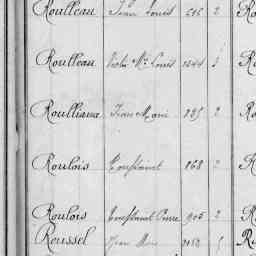 Roulleau Jean Louis 616 2
Roulleau Victor Mie Louis 1244 3
Roulliaux Jean Marie 185 2
Roulois Toussaint 868 2
Roulois Toussaint Pierre 905 2
Roussel Jean Marie